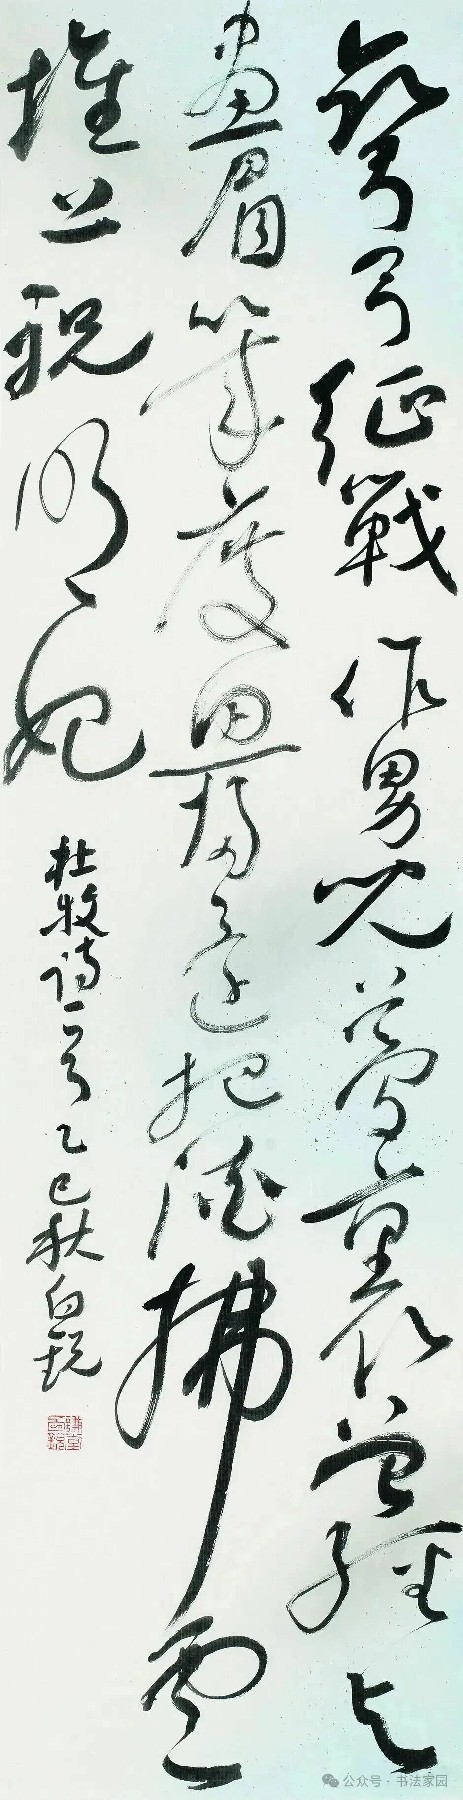 彎弓征戰作男兒夢裏曾經与
畫眉幾度思歸還把酒拂雲
堆上祝明妃
杜牧诗一首乙巳秋白
公众号 · 书法家园